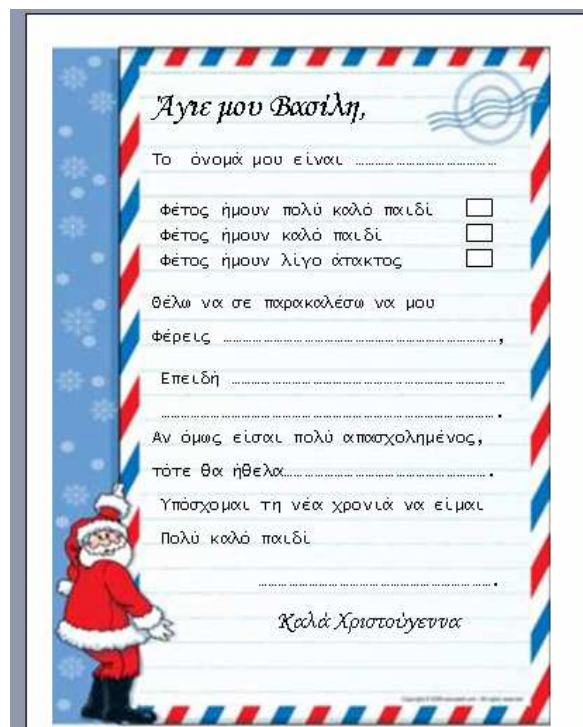 Άγιε μου Βασίλη,
Το όνομά μου είναι ......................................
Φέτος ήμουν πολύ καλό παιδί
Φέτος ήμουν καλό παιδί
Φέτος ήμουν λίγο άτακτος
Θέλω να σε παρακαλέσω να μου
Φέρεις ......................................,
Επειδή ......................................
.......................................
Αν όμως είσαι πολύ απασχολημένος,
τότε θα ήθελα.......................................
Υπόσχομαι τη νέα χρονιά να είμαι
Πολύ καλό παιδί
.......................................
Καλά Χριστούγεννα